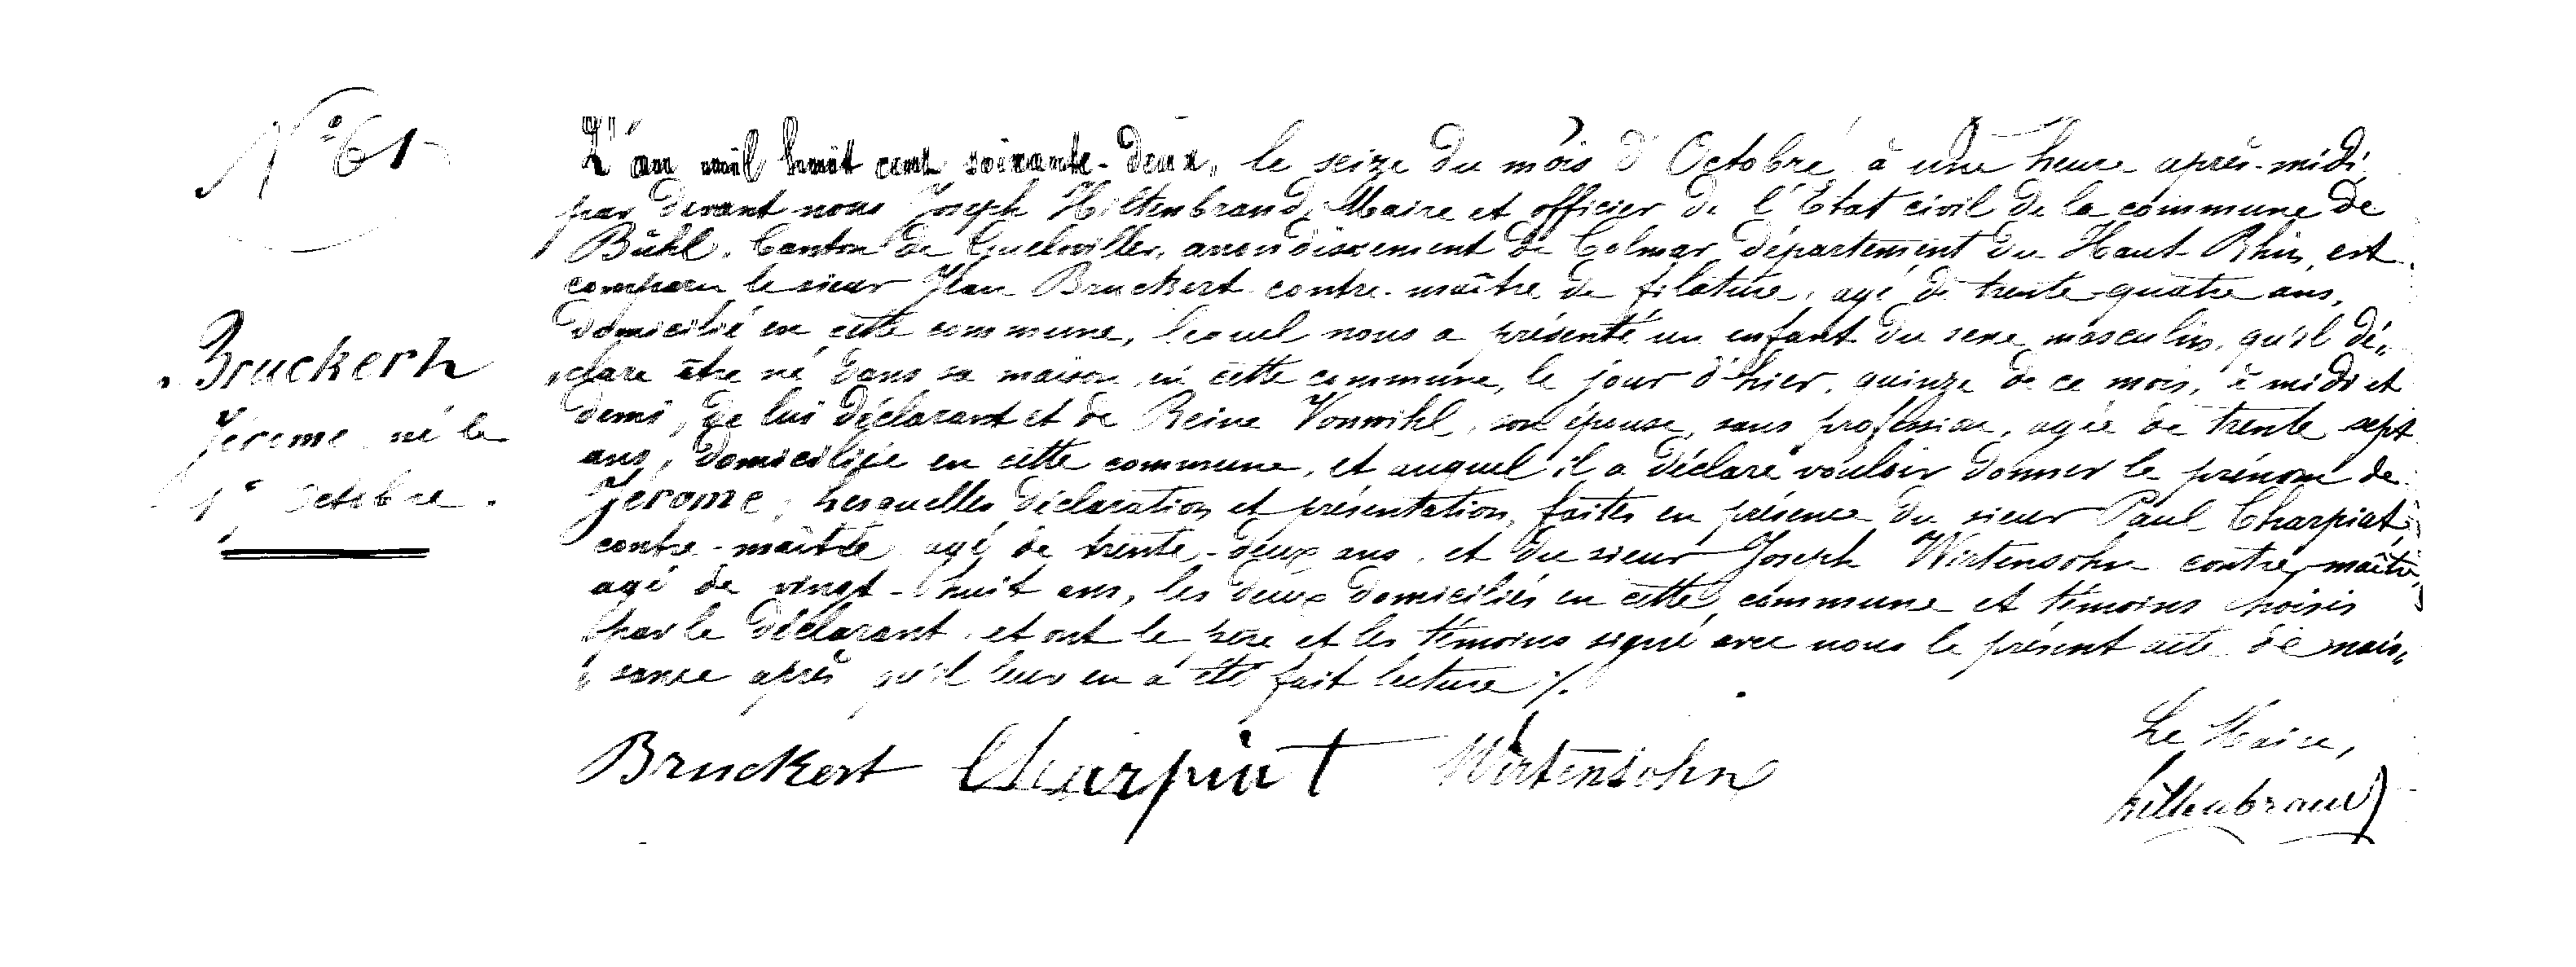 N° 61
Bruckert
Jérome né le
15 Octobre.
L'an mil huit cent soixante-deux, le seize du mois d'Octobre à une heure après-midi
par devant nous Joseph Hiltenbrand, Maire et officier de l'Etat civil de la commune de
Bühl, Canton de Guebwiller, arrondissement de Colmar, département du Haut-Rhin, est
comparu le sieur Jean Bruckert contre-maître de filature, agé de trente-quatre ans,
domicilié en cette commune, lequel nous a présenté un enfant du sexe masculin, qu'il dé„
„clare être né dans sa maison en cette commune, le jour d'hier, quinze de ce mois, à midi et
demi, de lui déclarant et de Reine Vonwihl, son épouse, sans profession, agée de trente sept
ans, domiciliée en cette commune, et auquel il a déclaré vouloir donner le prénom de
Jérome; Lesquelles déclaration et présentation, faites en présence du sieur Paul Charpiat,
contre-maître agé de trente-deux ans, et du sieur Joseph Wirtensohn contre-maître,
agé de vingt-huit ans, les deux domiciliés en cette commune et témoins choisis
par le déclarant, et ont le père et les témoins signé avec nous le présent acte de nais„
„sance après qu'il leur en a été fait lecture ./.
Bruckert Charpiat Wirtensohn
Le Maire,
hiltenbrand